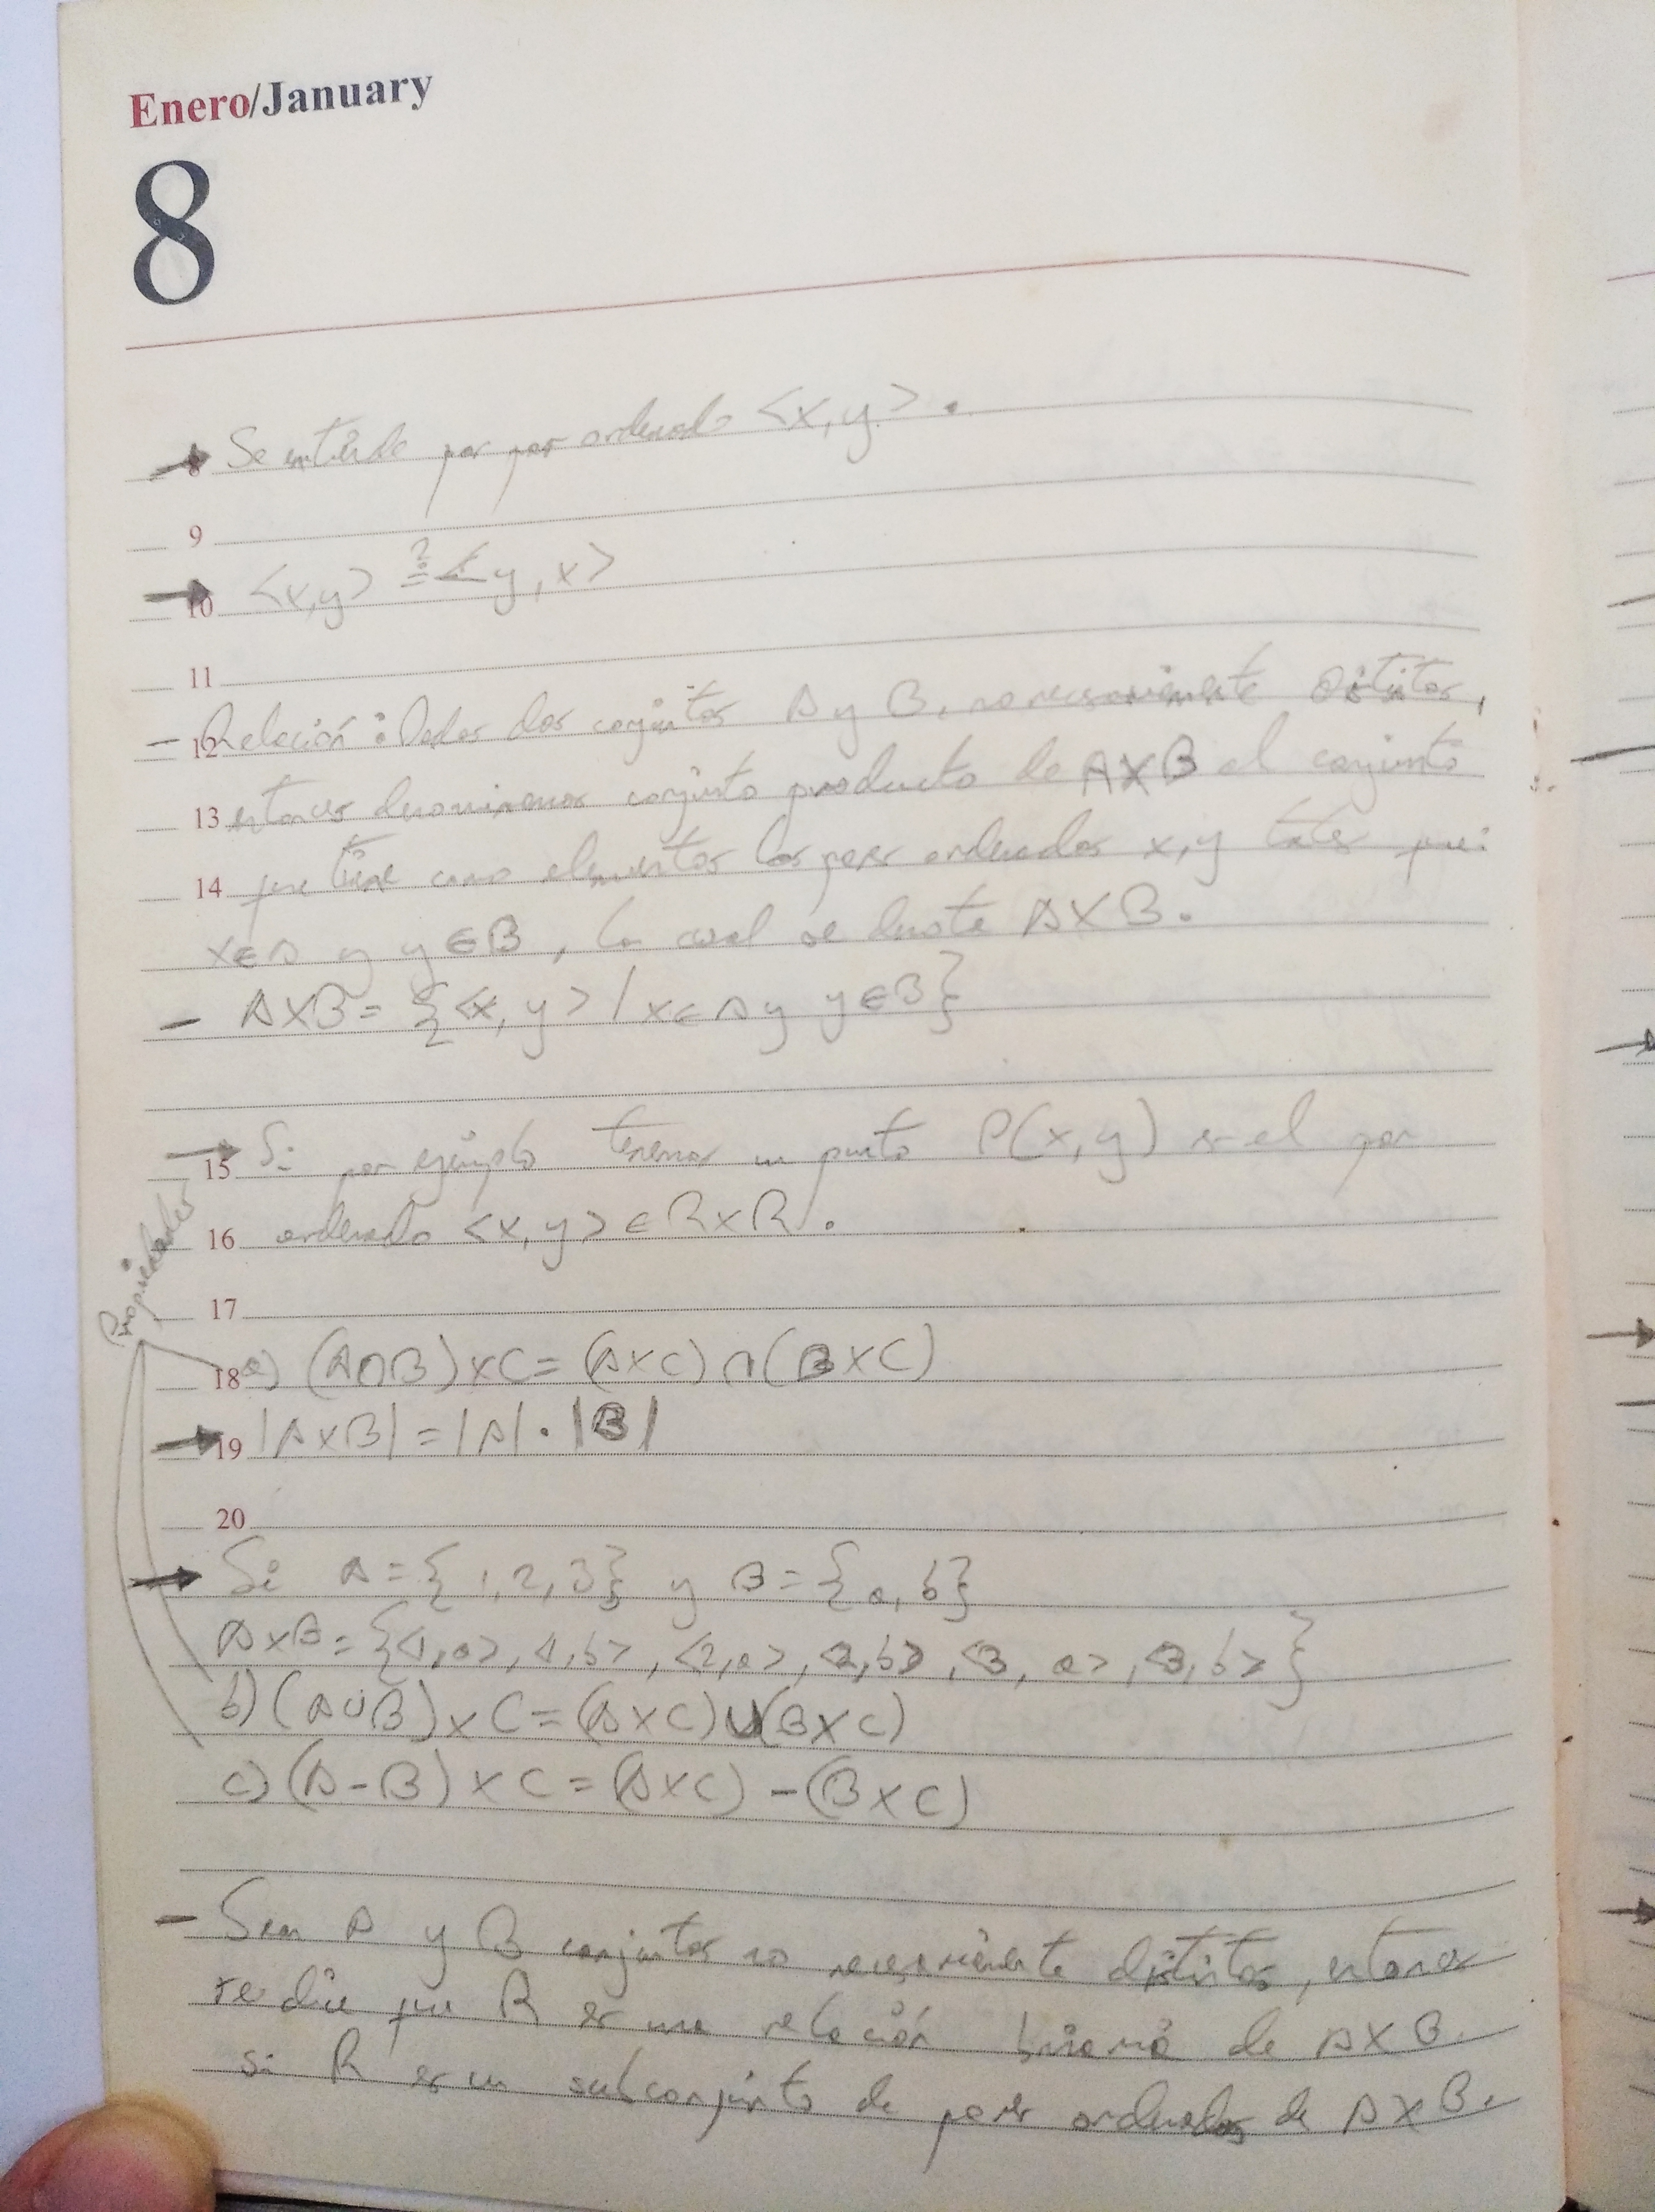 Enero/January
8
→ Se entiende por par ordenado <x,y>.
9
→ 10 <x,y> ?= <y,x>
11
- 12 Relación: Dados dos conjuntos A y B, no necesariamente distintos,
13 entonces denominamos conjunto producto de AXB el conjunto
14 que tiene como elementos los pares ordenados x,y tales que:
x∈A y y∈B, lo cual se denota AXB.
- AXB = {<x,y> / x∈A y y∈B}
→ 15 Si por ejemplo tenemos un punto P(x,y) es el par
16 ordenado <x,y> ∈ RxR.
17
Propiedades
18 a) (A∩B)xC = (AxC)∩(BxC)
→ 19 |AxB| = |A|·|B|
20
→ Si A={1,2,3} y B={a,b}
AxB={<1,a>,<1,b>,<2,a>,<2,b>,<3,a>,<3,b>}
b) (A∪B)xC=(AxC)∪(BxC)
c) (A-B)xC=(AxC)-(BxC)
- Sean A y B conjuntos no necesariamente distintos, entonces
se dice que R es una relación binaria de AXB.
si R es un subconjunto de pares ordenados de AXB.